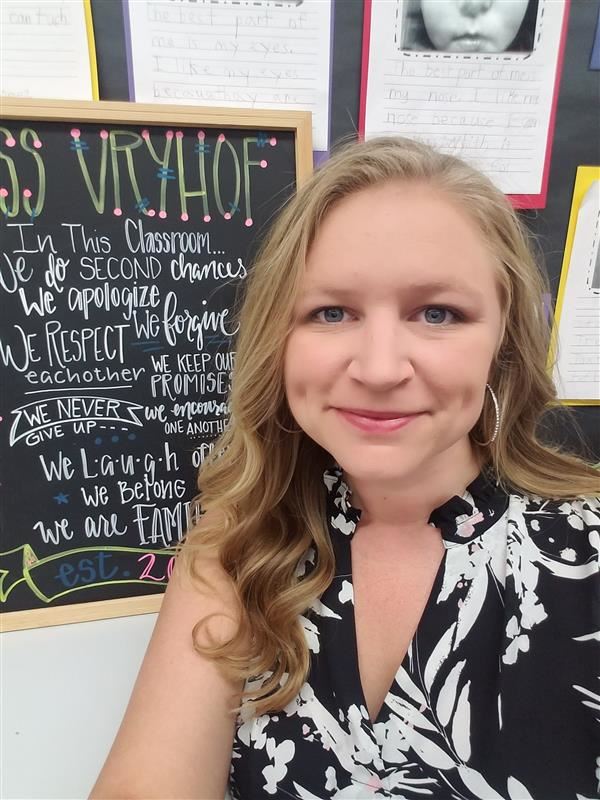 can
The best part of
me is my eyes.
I like my eyes
The best part of me is
my nose. I like my
nose because I can
SS VRYHOF
In This Classroom...
We do SECOND chances
We apologize
We forgive
WE RESPECT
eachother
WE KEEP OUR
PROMISES
WE NEVER
GIVE UP---
we encourage
ONE ANOTHER
We L·a·u·g·h
we BELONG
we are FAMI
est. 2